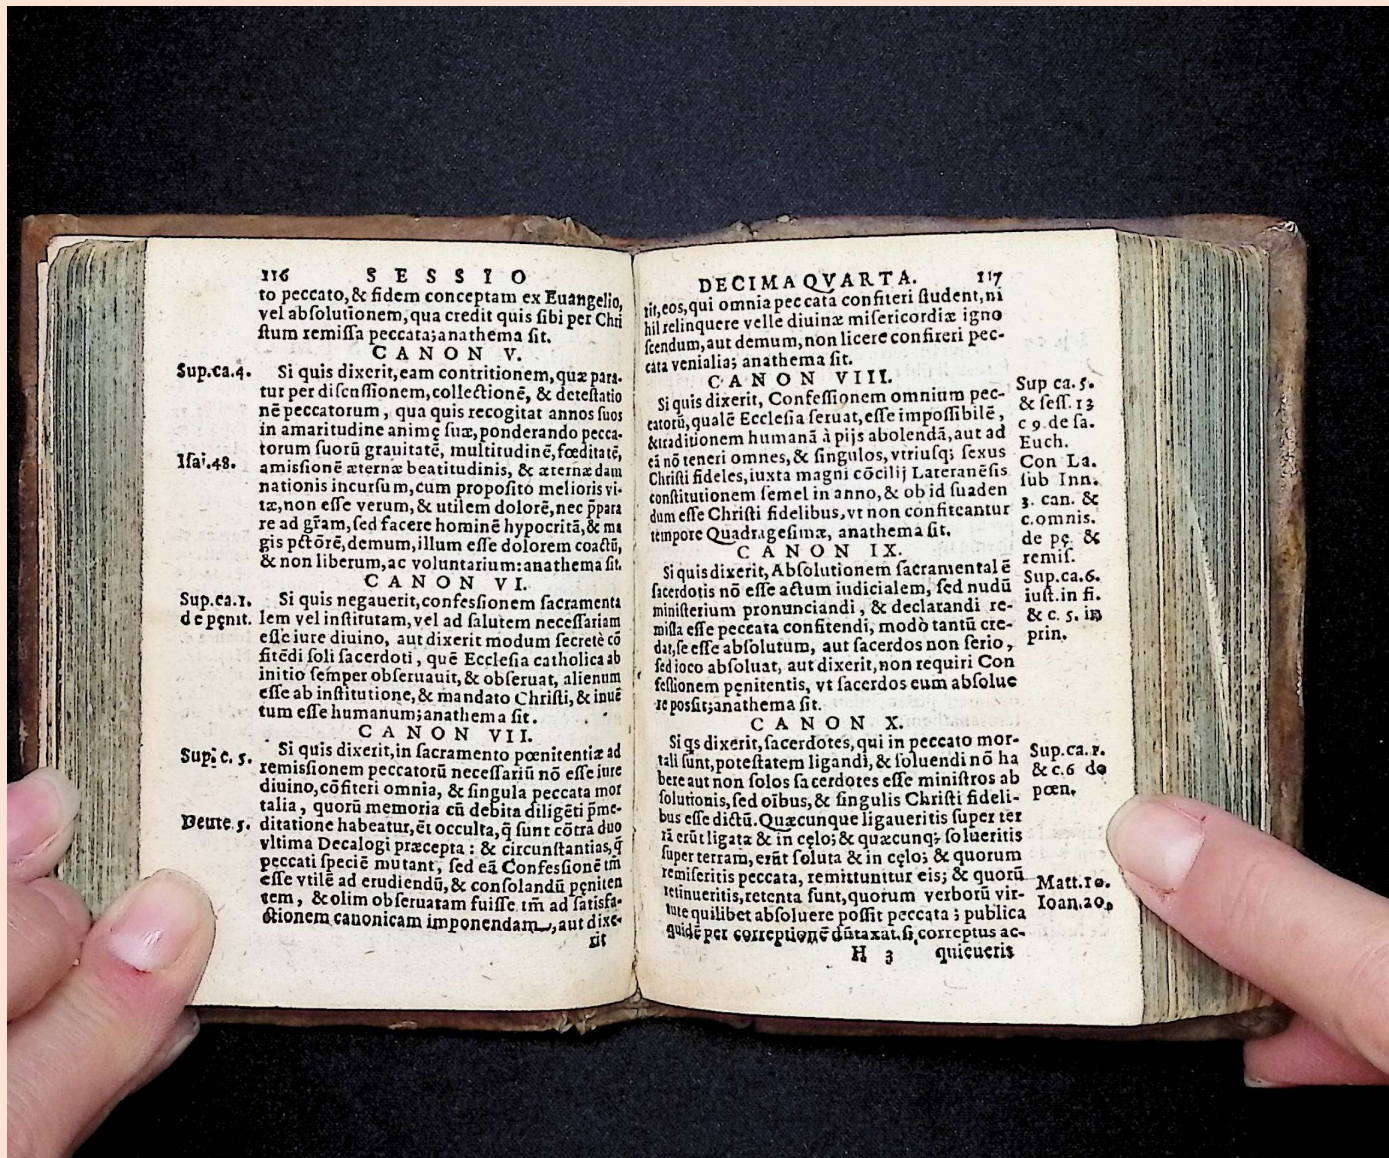 116 SESSIO
to peccato, & fidem conceptam ex Euangelio,
vel absolutionem, qua credit quis sibi per Chri
ſtum remiſſa peccata; anathema ſit.
CANON V.
Sup.ca.4. Si quis dixerit, eam contritionem, quæ para-
tur per diſcnſſionem, collectionē, & deteſtatio
nē peccatorum, qua quis recogitat annos ſuos
in amaritudine animę ſuæ, ponderando pecca-
torum ſuorū grauitatē, multitudinē, fœditatē,
Iſai.48. amiſſionē æternæ beatitudinis, & æternæ dam
nationis incurſum, cum propoſito melioris vi-
tæ, non eſſe verum, & utilem dolorē, nec p̄para
re ad gr̄am, ſed facere hominē hypocritā, & ma
gis pctōrē, demum, illum eſſe dolorem coactū,
& non liberum, ac voluntarium: anathema ſit.
CANON VI.
Sup.ca.1. Si quis negauerit, confeſſionem ſacramenta
de pęnit. lem vel inſtitutam, vel ad ſalutem neceſſariam
eſſe iure diuino, aut dixerit modum ſecretè cō
fitēdi ſoli ſacerdoti, quē Eccleſia catholica ab
initio ſemper obſeruauit, & obſeruat, alienum
eſſe ab inſtitutione, & mandato Chriſti, & inuē
tum eſſe humanum; anathema ſit.
CANON VII.
Sup. c. 5. Si quis dixerit, in ſacramento pœnitentiæ ad
remiſſionem peccatorū neceſſariū nō eſſe iure
diuino, cōfiteri omnia, & ſingula peccata mor
talia, quorū memoria cū debita diligēti p̄me-
Deute.5. ditatione habeatur, ēt occulta, q̄ ſunt cōtra duo
vltima Decalogi præcepta: & circunſtantias, q̄
peccati ſpeciē mutant, ſed eā Confeſſionē tm̄
eſſe vtilē ad erudiendū, & conſolandū pęniten
tem, & olim obſeruatam fuiſſe. tm̄ ad ſatisfa-
ctionem canonicam imponendam, aut dixe-
rit
DECIMA QVARTA. 117
rit, eos, qui omnia peccata confiteri ſtudent, ni
hil relinquere velle diuinæ miſericordiæ igno
ſcendum, aut demum, non licere confireri pec-
cata venialia; anathema ſit.
CANON VIII.
Si quis dixerit, Confeſſionem omnium pec-
catorū, qualē Eccleſia ſeruat, eſſe impoſſibilē,
& traditionem humanā à pijs abolendā, aut ad
eā nō teneri omnes, & ſingulos, vtriuſq; ſexus
Chriſti fideles, iuxta magni cōcilij Lateranēſis
conſtitutionem ſemel in anno, & ob id ſuaden
dum eſſe Chriſti fidelibus, vt non confiteantur
tempore Quadrageſimæ, anathema ſit.
Sup ca.5.
& ſeſſ.13
c 9.de ſa.
Euch.
Con La.
ſub Inn.
3. can. &
c.omnis.
de pę. &
remiſ.
CANON IX.
Si quis dixerit, Abſolutionem ſacramentalē
ſacerdotis nō eſſe actum iudicialem, ſed nudū
miniſterium pronunciandi, & declarandi re-
miſſa eſſe peccata confitendi, modò tantū cre-
dat, ſe eſſe abſolutum, aut ſacerdos non ſerio,
ſed ioco abſoluat, aut dixerit, non requiri Con
feſſionem pęnitentis, vt ſacerdos eum abſolue
re poſſit; anathema ſit.
Sup.ca.6.
iuſt.in fi.
& c. 5. in
prin.
CANON X.
Si qs dixerit, ſacerdotes, qui in peccato mor-
tali ſunt, poteſtatem ligandi, & ſoluendi nō ha
bere aut non ſolos ſacerdotes eſſe miniſtros ab
ſolutionis, ſed oībus, & ſingulis Chriſti fideli-
bus eſſe dictū. Quæcunque ligaueritis ſuper ter
rā erūt ligata & in cęlo; & quæcunq; ſolueritis
ſuper terram, erūt ſoluta & in cęlo; & quorum
remiſeritis peccata, remittunitur eis; & quorū
retinueritis, retenta ſunt, quorum verborū vir-
tute quilibet abſoluere poſſit peccata; publica
quidē per correptionē dūtaxat, ſi correptus ac-
H 3 quieueris
Sup.ca.1.
& c.6 de
pœn.
Matt.10.
Ioan.20.